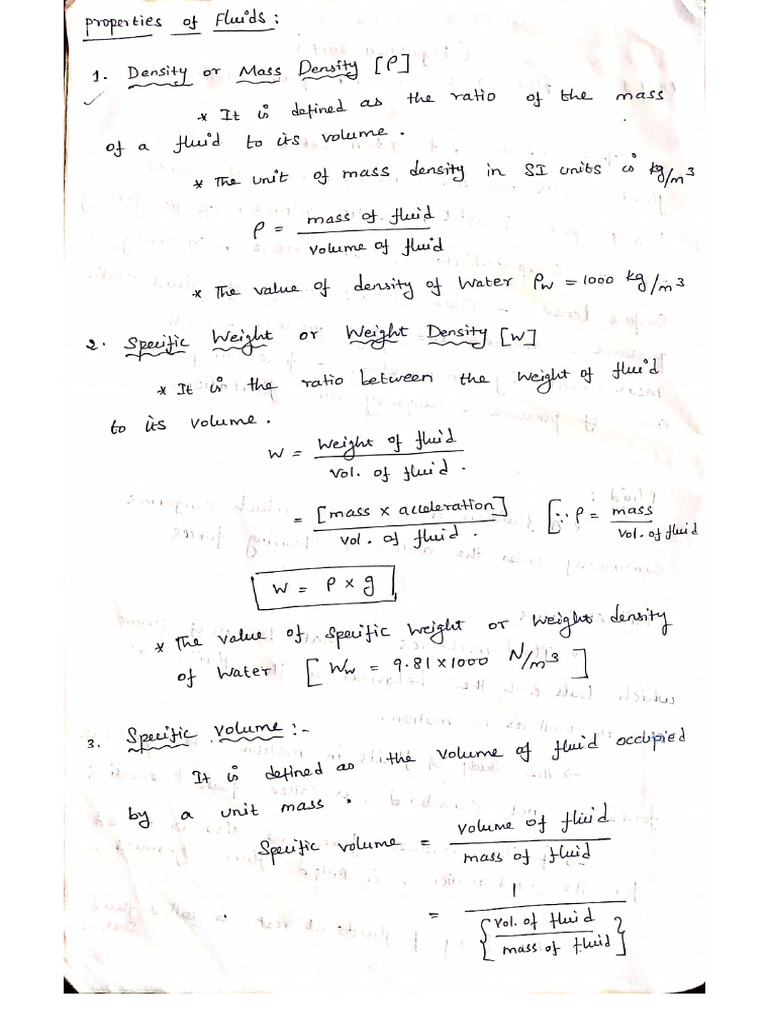 Properties of Fluids :
1. Density or Mass Density [ρ]
* It is defined as the ratio of the mass
of a fluid to its volume.
* The unit of mass density in SI units is kg/m³
ρ = mass of fluid / volume of fluid
* The value of density of water ρw = 1000 kg/m³
2. Specific Weight or Weight Density [w]
* It is the ratio between the weight of fluid
to its volume.
W = Weight of fluid / Vol. of fluid.
= [mass x acceleration] / Vol. of fluid. [∵ ρ = mass / Vol. of fluid
W = ρ x g
* The value of specific weight or weight density
of water [Ww = 9.81 x 1000 N/m³]
3. Specific volume :-
It is defined as the volume of fluid occupied
by a unit mass.
Specific volume = volume of fluid / mass of fluid
= 1 / {vol. of fluid / mass of fluid}